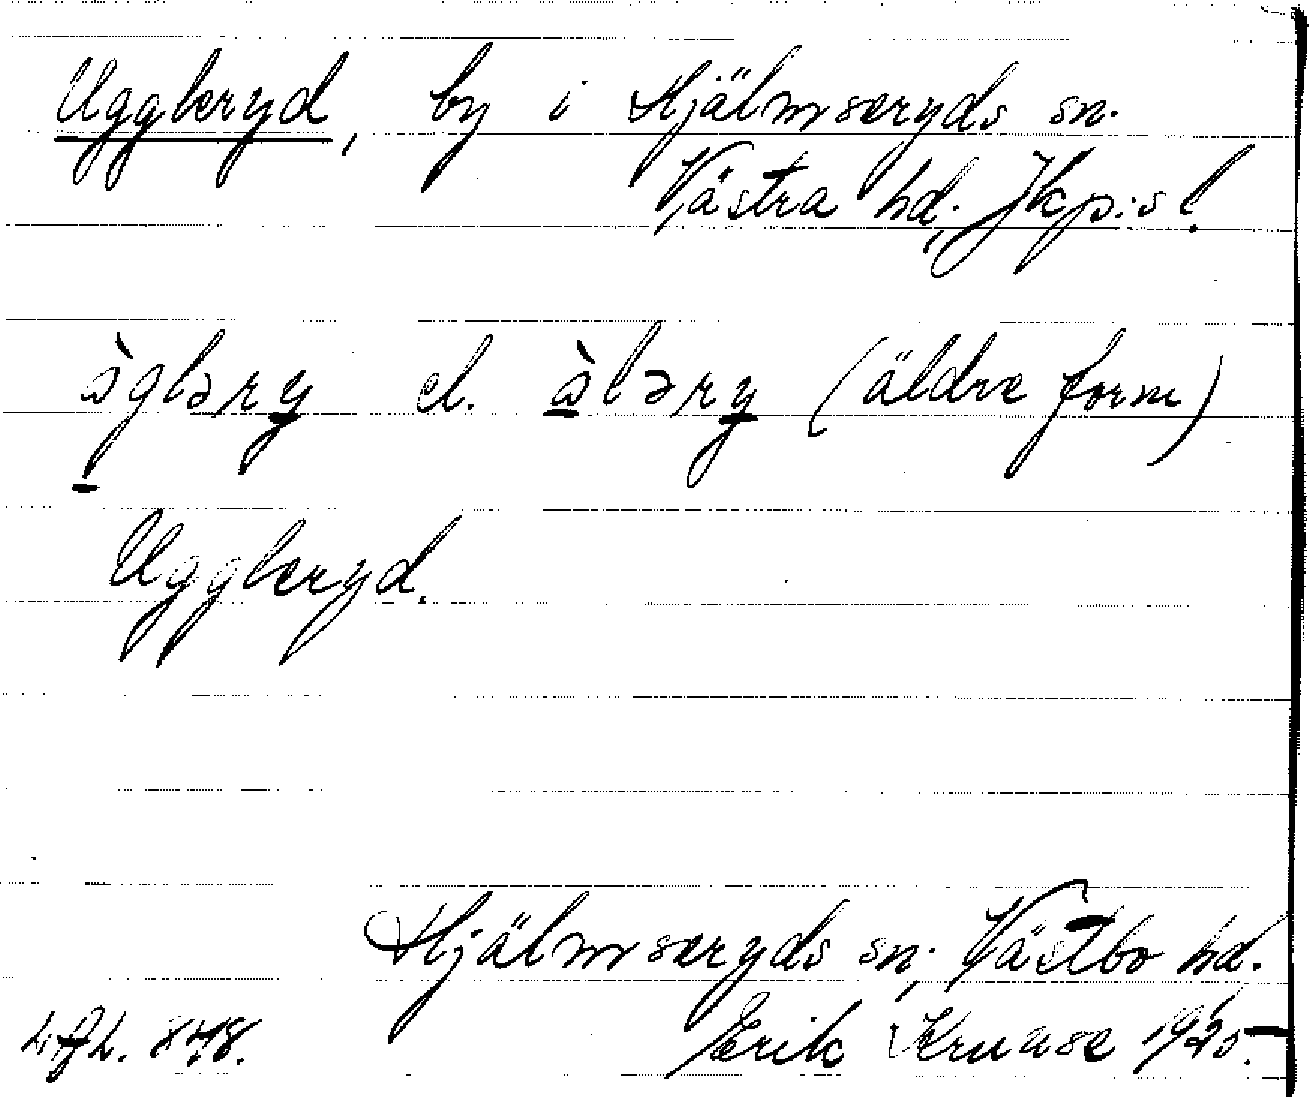 Uggleryd, by i Hjälmseryds sn.
Västra hd, Jkp:s l.
àgləry el. àləry (äldre form)
Uggleryd.
Hjälmseryds sn, Västbo hd.
848. Erik Kruuse 1925.